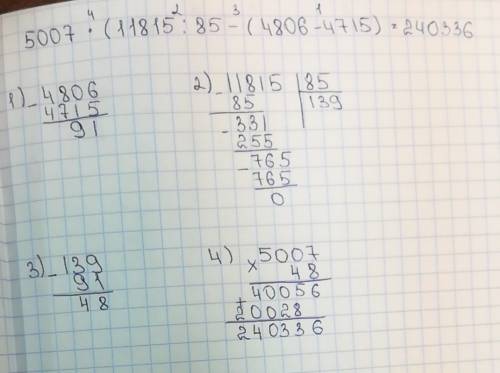 4 2 3 1
5007 · (11815 : 85 - (4806 - 4715) = 240336
1) - 4806
4715
91
2) - 11815 | 85
85 | 139
- 331
255
- 765
765
0
3) - 139
91
48
4) × 5007
48
40056
+ 20028
240336